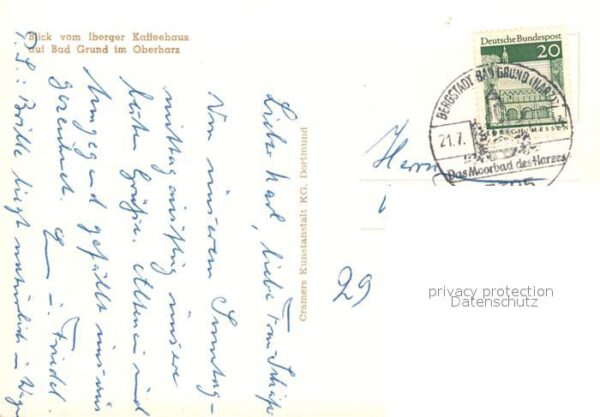 Blick vom Iberger Kaffeehaus
auf Bad Grund im Oberharz
Deutsche Bundespost
20
LORSCH/HESSEN
BERGSTADT BAD GRUND (HARZ)
21.7.
Das Moorbad des Harzes
Herrn
Cramers Kunstanstalt KG. Dortmund
29
privacy protection
Datenschutz
Liebe Karl, liebe
Von unserem Sonntag-
mittagausflug unsere
besten Grüße. und
Umgegend gefällt uns
gezeichnet. u. Friedel.
P.S.: Brille liegt natürlich im